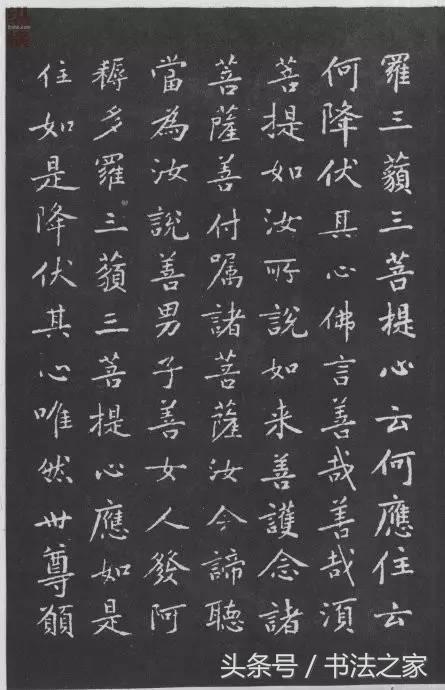 羅三藐三菩提心云何應住云
何降伏其心佛言善哉善哉須
菩提如汝所說如来善護念諸
菩薩善付嘱諸菩薩汝今諦聽
當為汝說善男子善女人發阿
耨多羅三藐三菩提心應如是
住如是降伏其心唯然世尊願
头条号 / 书法之家